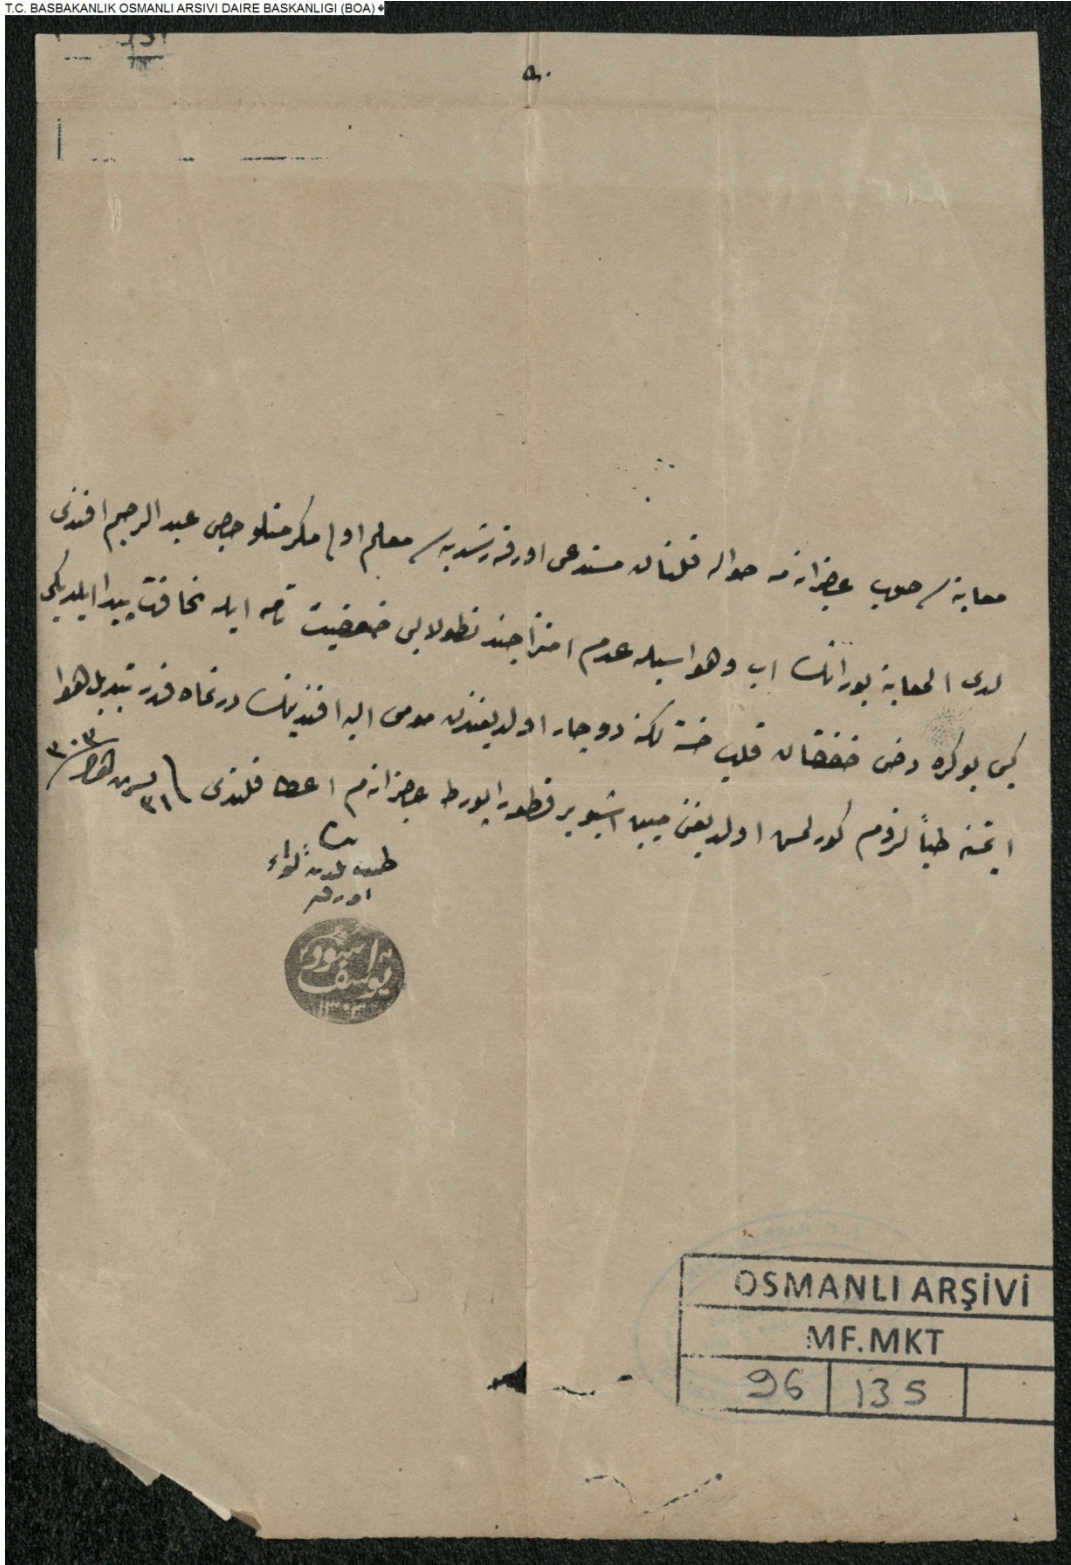 T.C. BASBAKANLIK OSMANLI ARSIVI DAIRE BASKANLIGI (BOA)
معاينه سى صوب عاجزانه مه حواله قلنان مستدعى اورفه رشديه سى معلم اولى مكرمتلو حاجى عبد الرحيم افندى
لدى المعاينه بورانك اب وهواسيله عدم امتزاجندن طولايى ضعفيت تامه ايله نحافت پيدا ايلديكى
كبى بوكره دخى خفقان قلب خسته لكنه دوچار اولديغندن مومى اليه افندينك درتماه قدر تبديل هوا
ايتمسنه طباً لزوم كورلمش اولديغنى مبين اشبو بر قطعه راپورط عاجزانه م اعطا قلندى ٣١ ٣٠٣
طبيب بلديه لواء
اورفه
يوسف
١٣٠٣
OSMANLI ARŞİVİ
MF.MKT
96 135